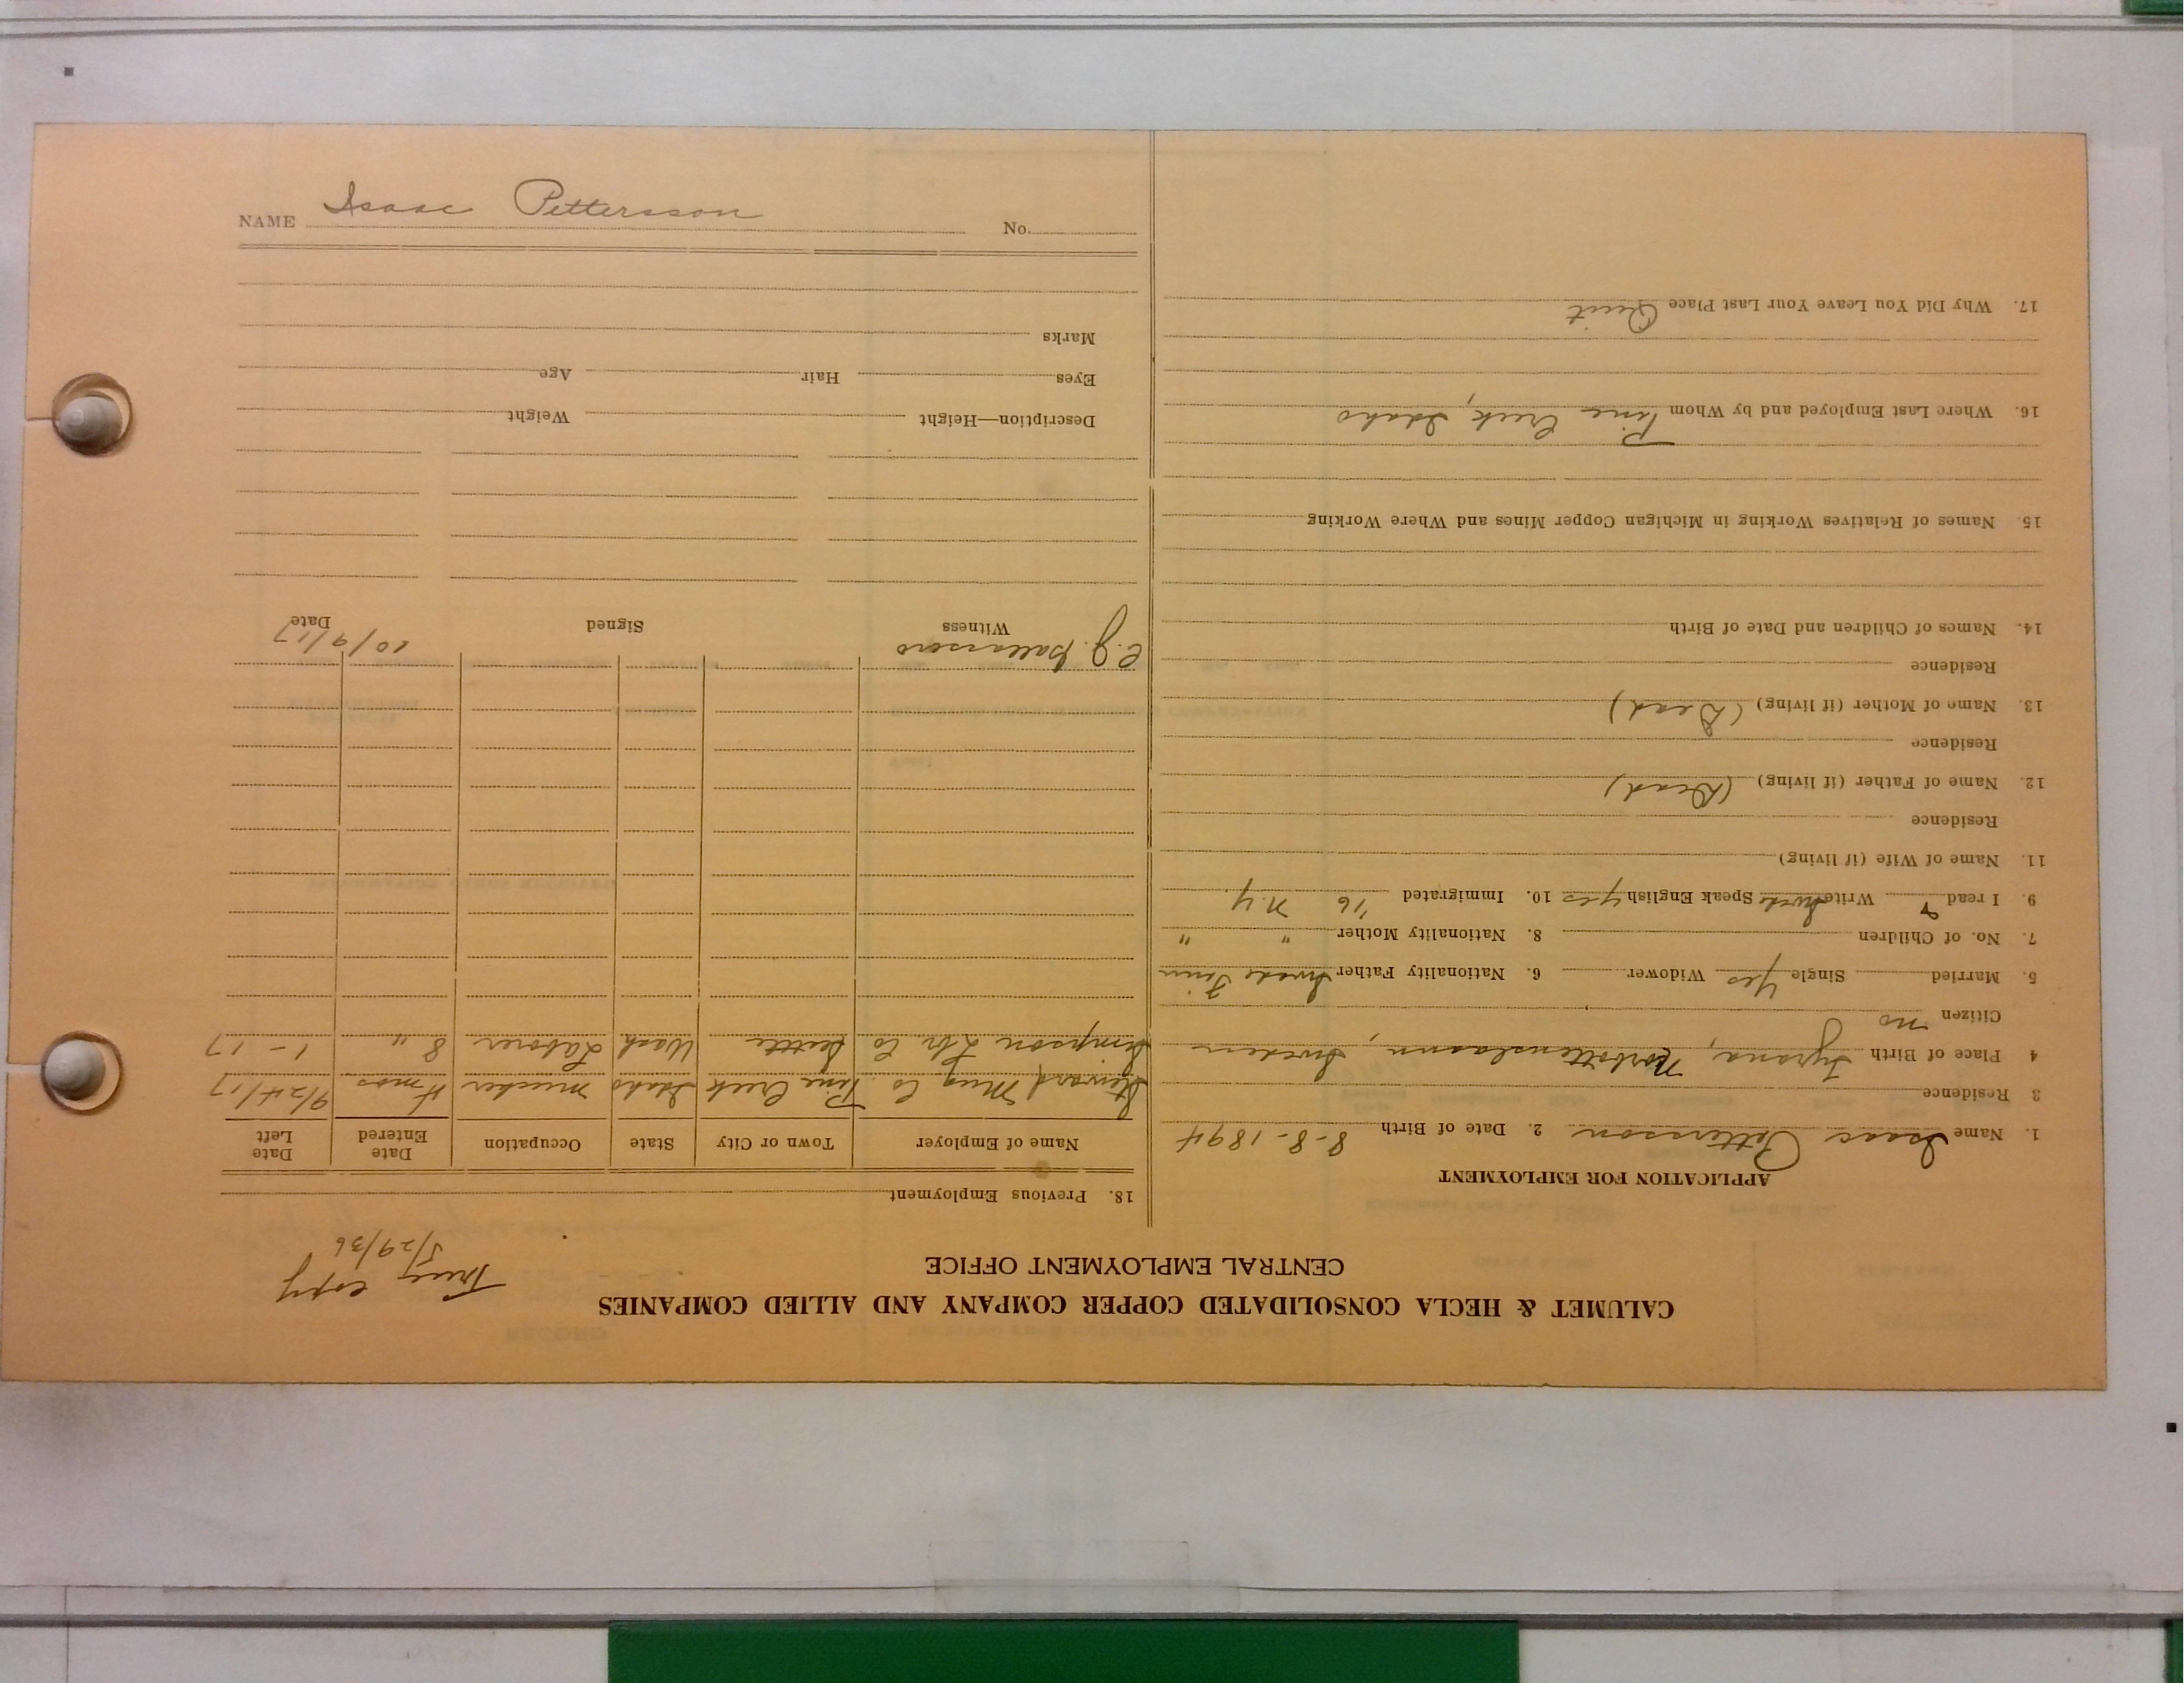 CALUMET & HECLA CONSOLIDATED COPPER COMPANY AND ALLIED COMPANIES
CENTRAL EMPLOYMENT OFFICE
True copy
5/29/36
APPLICATION FOR EMPLOYMENT
1. Name Isaac Pettersson 2. Date of Birth 8-8-1894
3 Residence
4 Place of Birth Norbottenslaann, Sweden
Citizen no
5. Married Single Yes Widower 6. Nationality Father Swede Finn
7. No. of Children 8. Nationality Mother " "
9. I read & Write Swede Speak English yes 10. Immigrated '16 N.Y.
11. Name of Wife (if living)
Residence
12. Name of Father (if living) (Dead)
Residence
13. Name of Mother (if living) (Dead)
Residence
14. Names of Children and Date of Birth
15. Names of Relatives Working in Michigan Copper Mines and Where Working
16. Where Last Employed and by Whom Pine Creek, Idaho
17. Why Did You Leave Your Last Place Quit
18. Previous Employment
Name of Employer Town or City State Occupation Date Entered Date Left
Steward Mng Co. Pine Creek Idaho mucker 4 mos 9/24/17
Simpson Lbr Co Seattle Wash Laborer 8 " 1-17
C.J. 10/9/17
Witness Signed Date
Description—Height Weight
Eyes Hair Age
Marks
NAME Isaac Pettersson No.